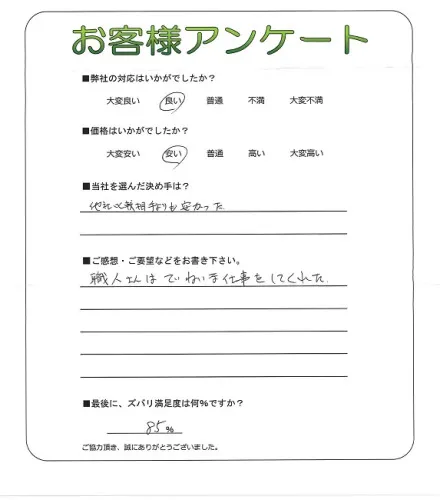 お客様アンケート
■弊社の対応はいかがでしたか?
大変良い 良い 普通 不満 大変不満
■価格はいかがでしたか?
大変安い 安い 普通 高い 大変高い
■当社を選んだ決め手は?
他社 りも安かった
■ご感想・ご要望などをお書き下さい。
職人さんはていねいな仕事をしてくれた.
■最後に、ズバリ満足度は何%ですか?
85%
ご協力頂き、誠にありがとうございました。